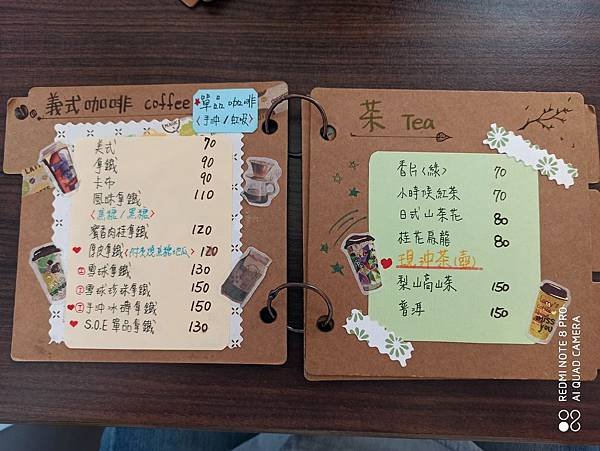 義式咖啡 coffee
★單品咖啡
<手沖/虹吸>
美式 70
拿鐵 90
卡布 90
風味拿鐵 110
<蔗糖/黑糖>
蜜香肉桂拿鐵 120
拿鐵 120
雪球拿鐵 130
雪球珍珠拿鐵 150
手沖冰磚拿鐵 150
S.O.E 單品拿鐵 130
茶 Tea
香片<綠> 70
小時候紅茶 70
日式山茶花 80
桂花烏龍 80
現沖茶(壺)
梨山高山茶 150
普洱 150
REDMI NOTE 8 PRO
AI QUAD CAMERA